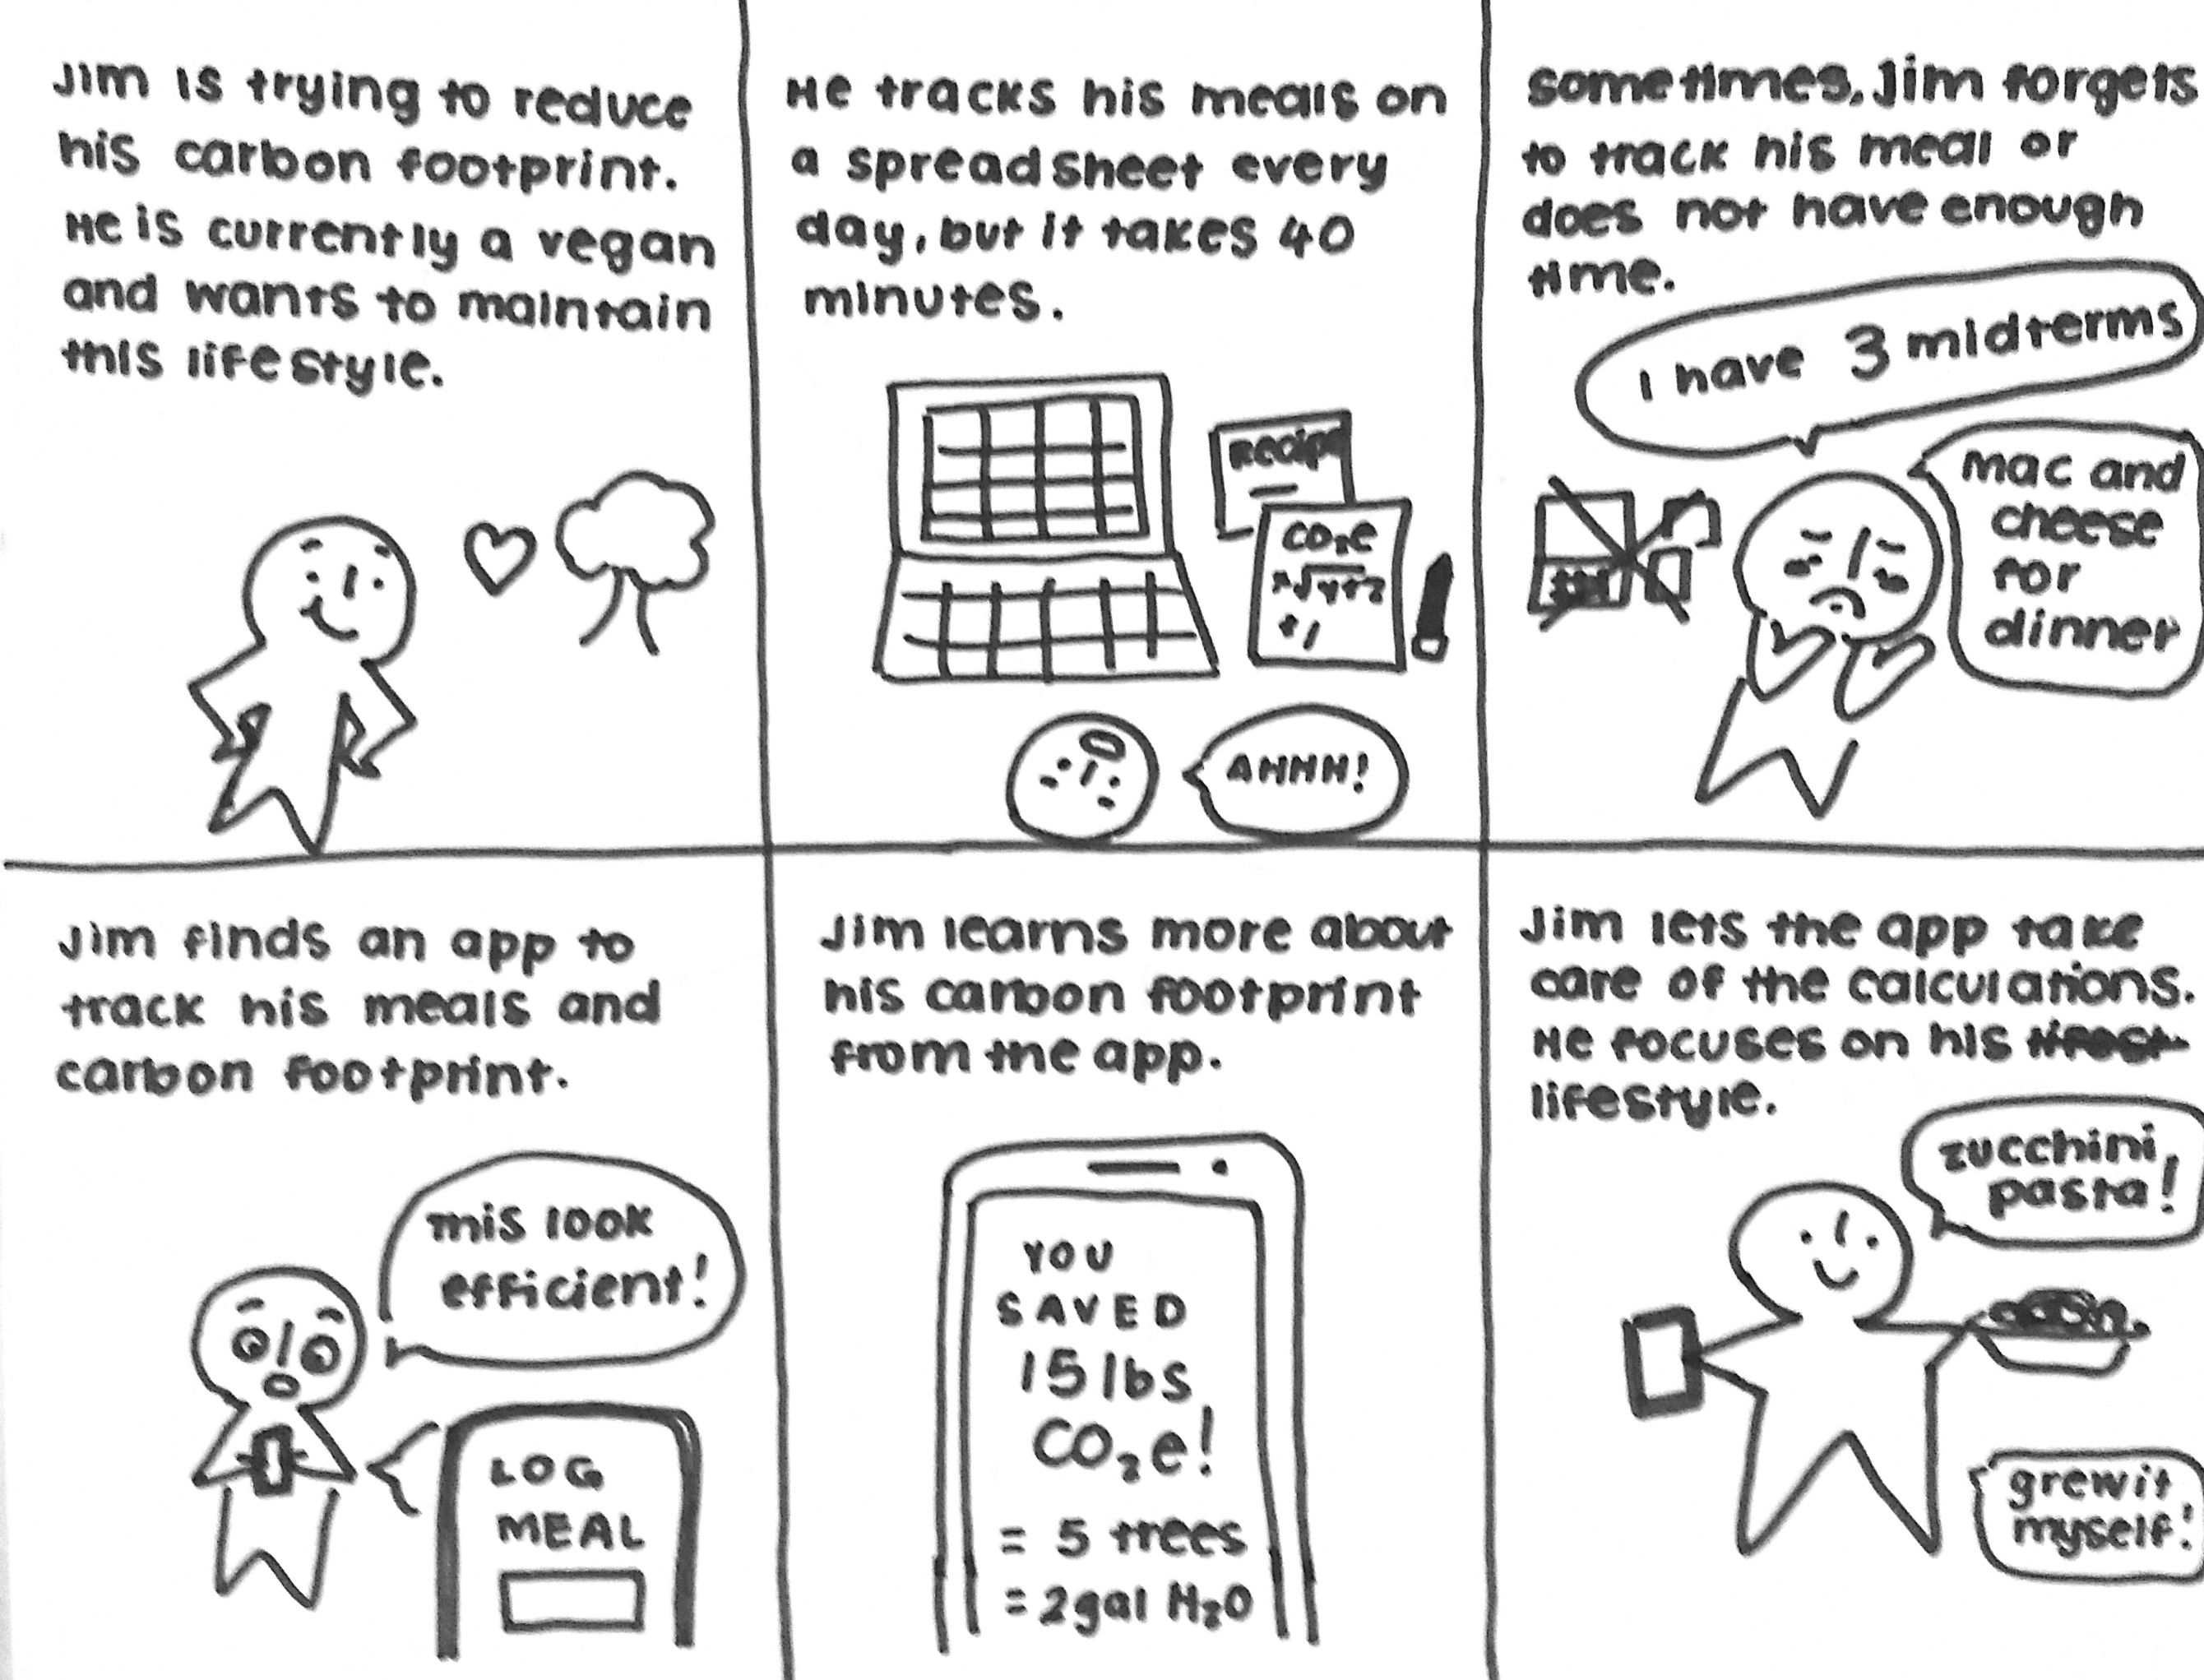 Jim is trying to reduce
his carbon footprint.
He is currently a vegan
and wants to maintain
this lifestyle.
He tracks his meals on
a spreadsheet every
day, but it takes 40
minutes.
Recipe
CO₂e
+1
AHHH!
sometimes, Jim forgets
to track his meal or
does not have enough
time.
I have 3 midterms
mac and
cheese
for
dinner
Jim finds an app to
track his meals and
carbon footprint.
this look
efficient!
LOG
MEAL
Jim learns more about
his carbon footprint
from the app.
YOU
SAVED
15 lbs
CO₂e!
= 5 trees
= 2 gal H₂O
Jim lets the app take
care of the calculations.
He focuses on his
lifestyle.
zucchini
pasta!
grew it
myself!